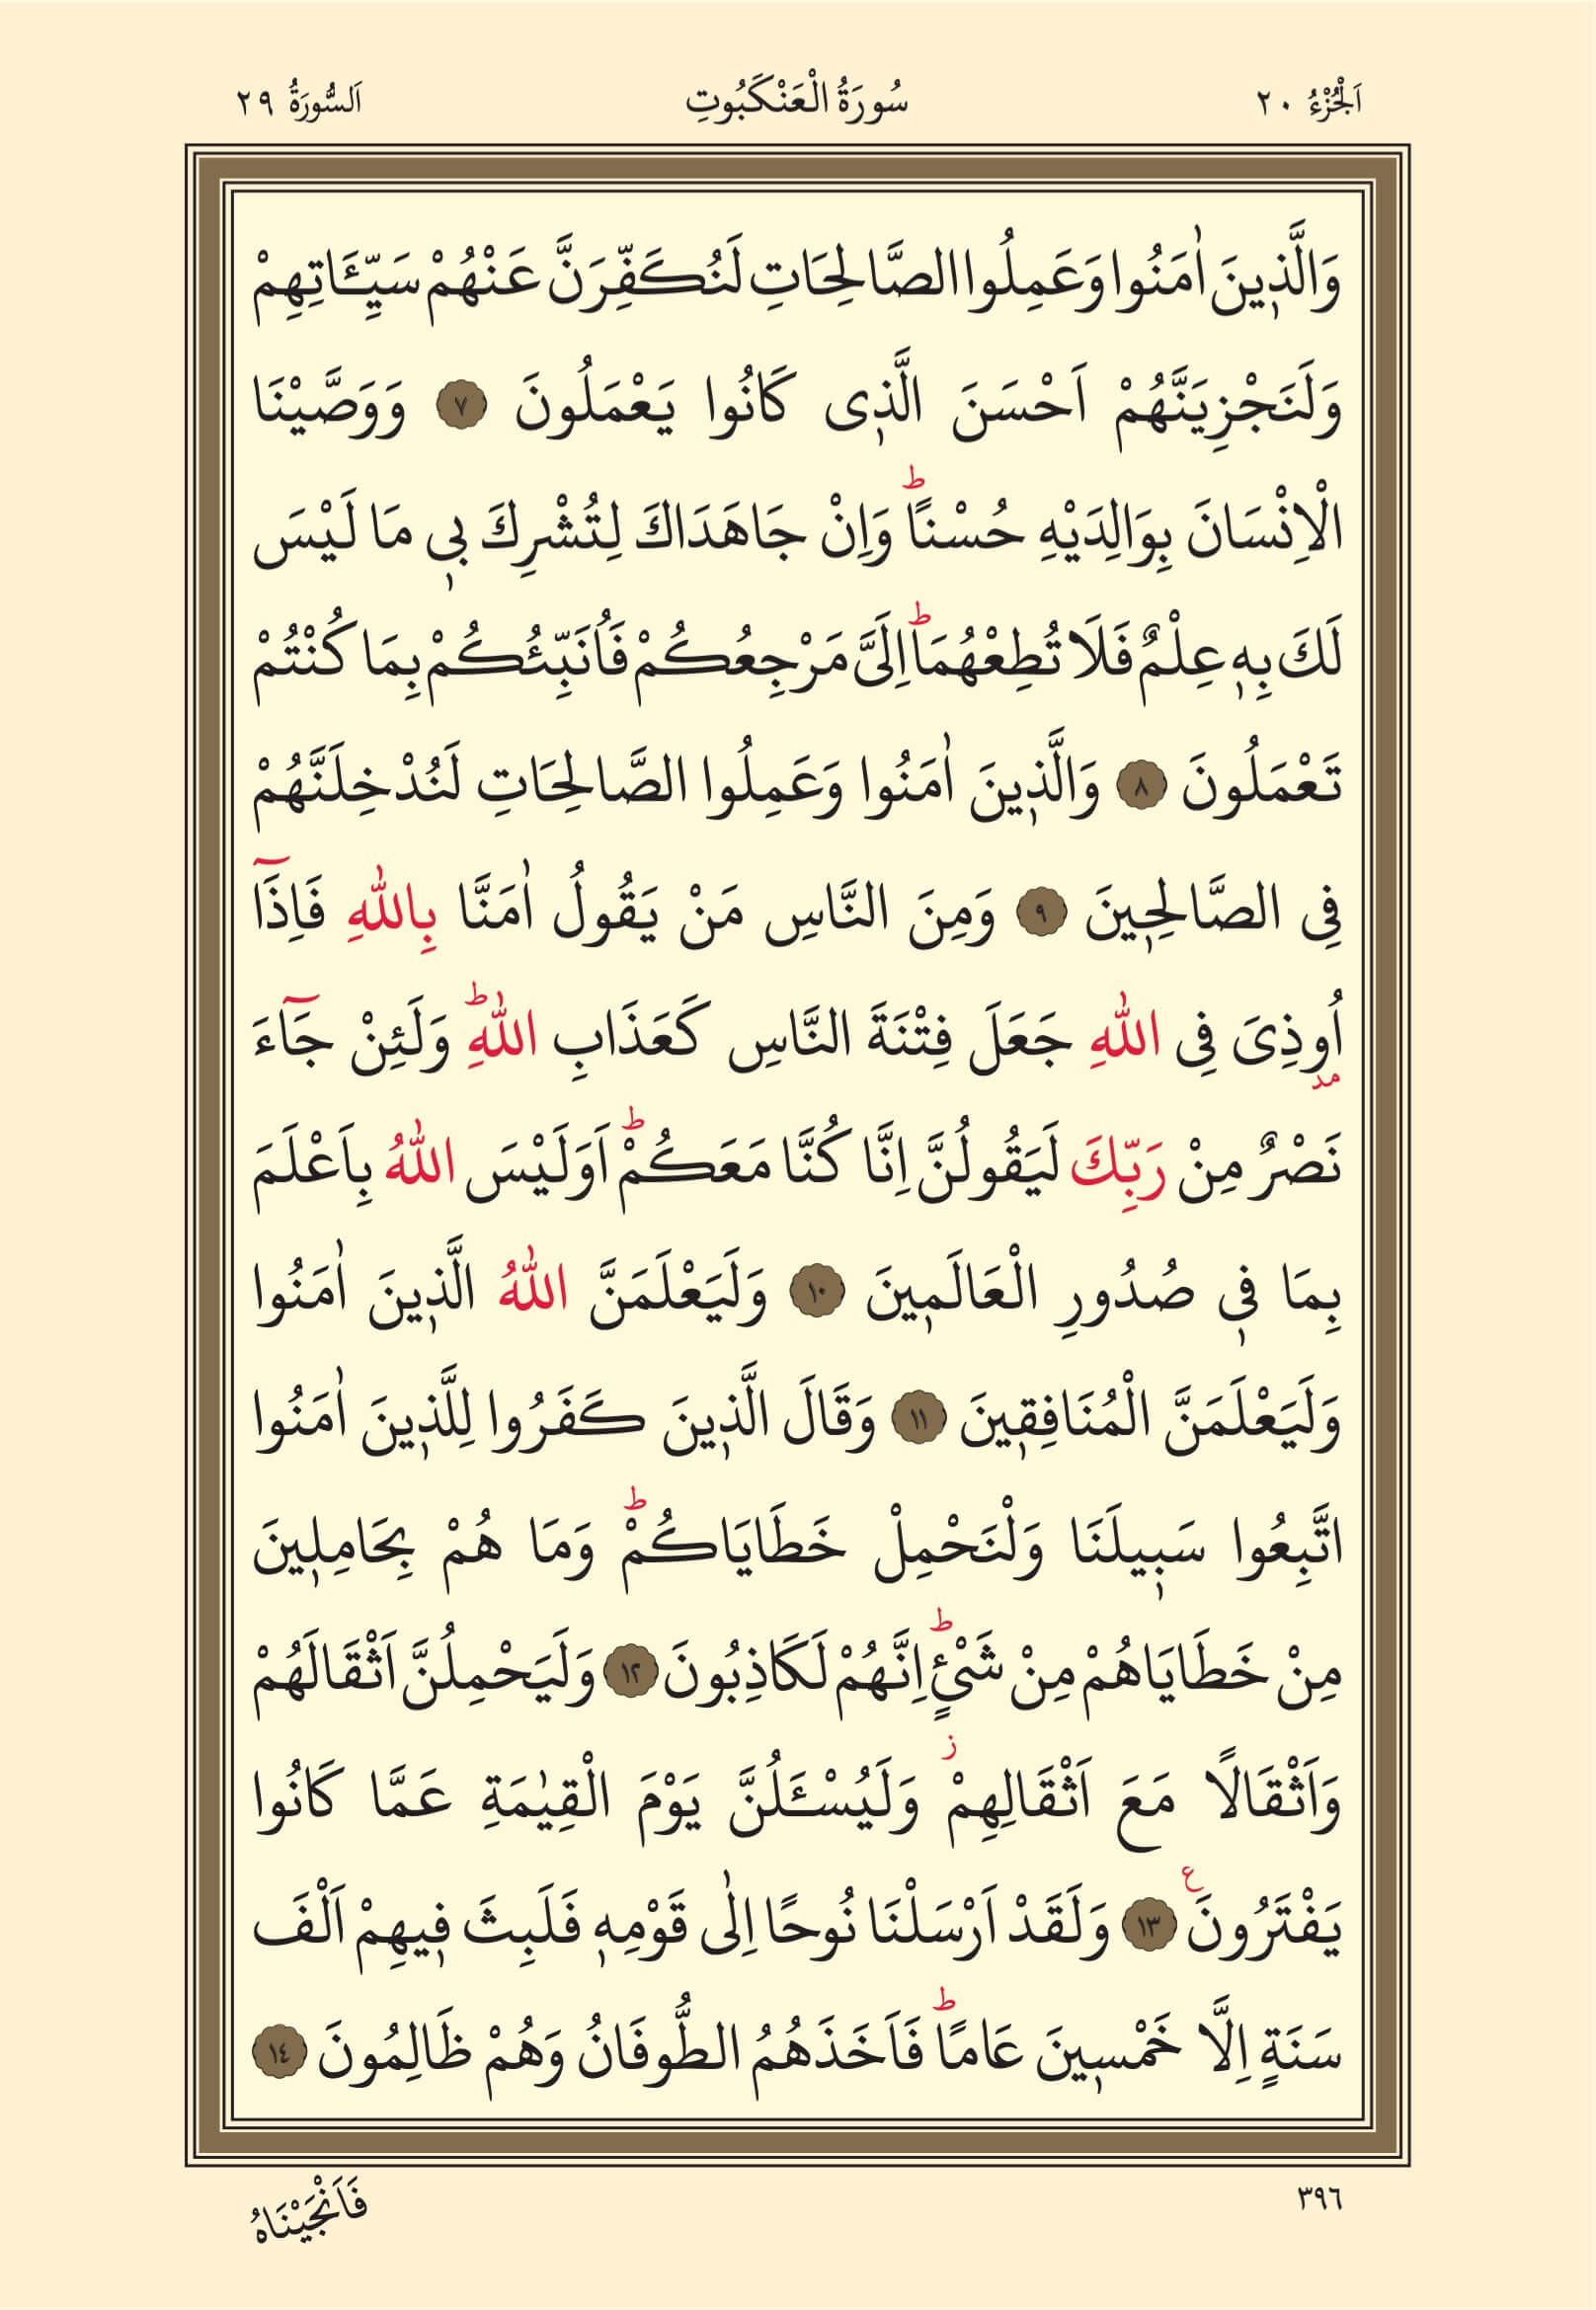 اَلْجُزْءُ ٢٠ سُورَةُ الْعَنْكَبُوتِ اَلسُّورَةُ ٢٩
وَالَّذ۪ينَ اٰمَنُوا وَعَمِلُوا الصَّالِحَاتِ لَنُكَفِّرَنَّ عَنْهُمْ سَيِّـَٔاتِهِمْ
وَلَنَجْزِيَنَّهُمْ اَحْسَنَ الَّذ۪ى كَانُوا يَعْمَلُونَ ٧ وَوَصَّيْنَا
الْاِنْسَانَ بِوَالِدَيْهِ حُسْنًاۜ وَاِنْ جَاهَدَاكَ لِتُشْرِكَ ب۪ى مَا لَيْسَ
لَكَ بِه۪ عِلْمٌ فَلَا تُطِعْهُمَاۜ اِلَىَّ مَرْجِعُكُمْ فَاُنَبِّئُكُمْ بِمَا كُنْتُمْ
تَعْمَلُونَ ٨ وَالَّذ۪ينَ اٰمَنُوا وَعَمِلُوا الصَّالِحَاتِ لَنُدْخِلَنَّهُمْ
فِى الصَّالِح۪ينَ ٩ وَمِنَ النَّاسِ مَنْ يَقُولُ اٰمَنَّا بِاللّٰهِ فَاِذَٓا
اُو۫ذِىَ فِى اللّٰهِ جَعَلَ فِتْنَةَ النَّاسِ كَعَذَابِ اللّٰهِۜ وَلَئِنْ جَٓاءَ
نَصْرٌ مِنْ رَبِّكَ لَيَقُولُنَّ اِنَّا كُنَّا مَعَكُمْۜ اَوَلَيْسَ اللّٰهُ بِاَعْلَمَ
بِمَا ف۪ى صُدُورِ الْعَالَم۪ينَ ١٠ وَلَيَعْلَمَنَّ اللّٰهُ الَّذ۪ينَ اٰمَنُوا
وَلَيَعْلَمَنَّ الْمُنَافِق۪ينَ ١١ وَقَالَ الَّذ۪ينَ كَفَرُوا لِلَّذ۪ينَ اٰمَنُوا
اتَّبِعُوا سَب۪يلَنَا وَلْنَحْمِلْ خَطَايَاكُمْۜ وَمَا هُمْ بِحَامِل۪ينَ
مِنْ خَطَايَاهُمْ مِنْ شَىْءٍۜ اِنَّهُمْ لَكَاذِبُونَ ١٢ وَلَيَحْمِلُنَّ اَثْقَالَهُمْ
وَاَثْقَالًا مَعَ اَثْقَالِهِمْۘ وَلَيُسْـَٔلُنَّ يَوْمَ الْقِيٰمَةِ عَمَّا كَانُوا
يَفْتَرُونَ۟ ١٣ وَلَقَدْ اَرْسَلْنَا نُوحًا اِلٰى قَوْمِه۪ فَلَبِثَ ف۪يهِمْ اَلْفَ
سَنَةٍ اِلَّا خَمْس۪ينَ عَامًاۜ فَاَخَذَهُمُ الطُّوفَانُ وَهُمْ ظَالِمُونَ ١٤
٣٩٦ فَاَنْجَيْنَاهُ